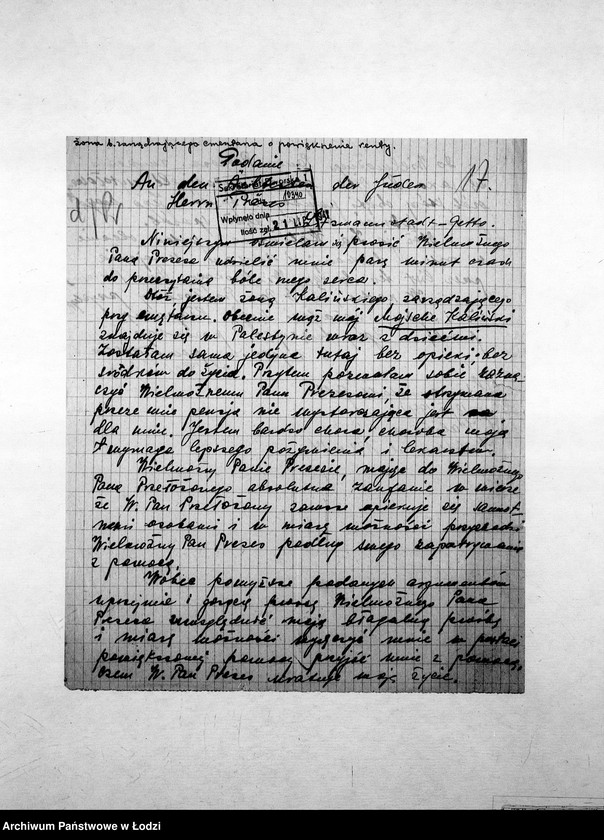 żona b. zarządzającego cmentarza o powiększenie renty.
Podanie
An den der Juden 17.
Herrn
Wpłynęło dnia 21 LIP
Ilość zał.
Litzmannstadt-Getto.
Niniejszym ośmielam się prosić Wielmożnego
Pana Prezesa udzielić mnie parę minut czasu
do przeczytania bóle mego serca.
Otóż jestem żoną Kalińskiego zarządzającego
przy cmętarzu. Obecnie mąż mój Mojsche Kaliński
znajduje się w Palestynie wraz z dziećmi.
Zostałam sama jedyna tutaj bez opieki - bez
środków do życia. Przytem pozwalam sobie zazna-
czyć Wielmożnemu Panu Prezesowi, że otrzymana
przeze mnie pensja nie wystarczająca jest
dla mnie. Jestem bardzo chora, choroba moja
wymaga lepszego pożywienia i lekarstw.
Wielmożny Panie Prezesie, mając do Wielmożnego
Pana Przełożonego absolutne zaufanie w
że W. Pan Przełożony zawsze opiekuje się samot-
nemi osobami i w miarę możności przychodzi
Wielmożny Pan Prezes podług swego zapatrywania
z pomocą.
Wobec pomyższe podanych argumentów
uprzejmie i gorąco proszę Wielmożnego Pana
Prezesa uwzględnić moją błagalną prośbę
i miarę możności mnie w postaci
powiększonej pomocy przyjść mnie z pomocą,
czem W. Pan Prezes uratuje moje życie.
Archiwum Państwowe w Łodzi